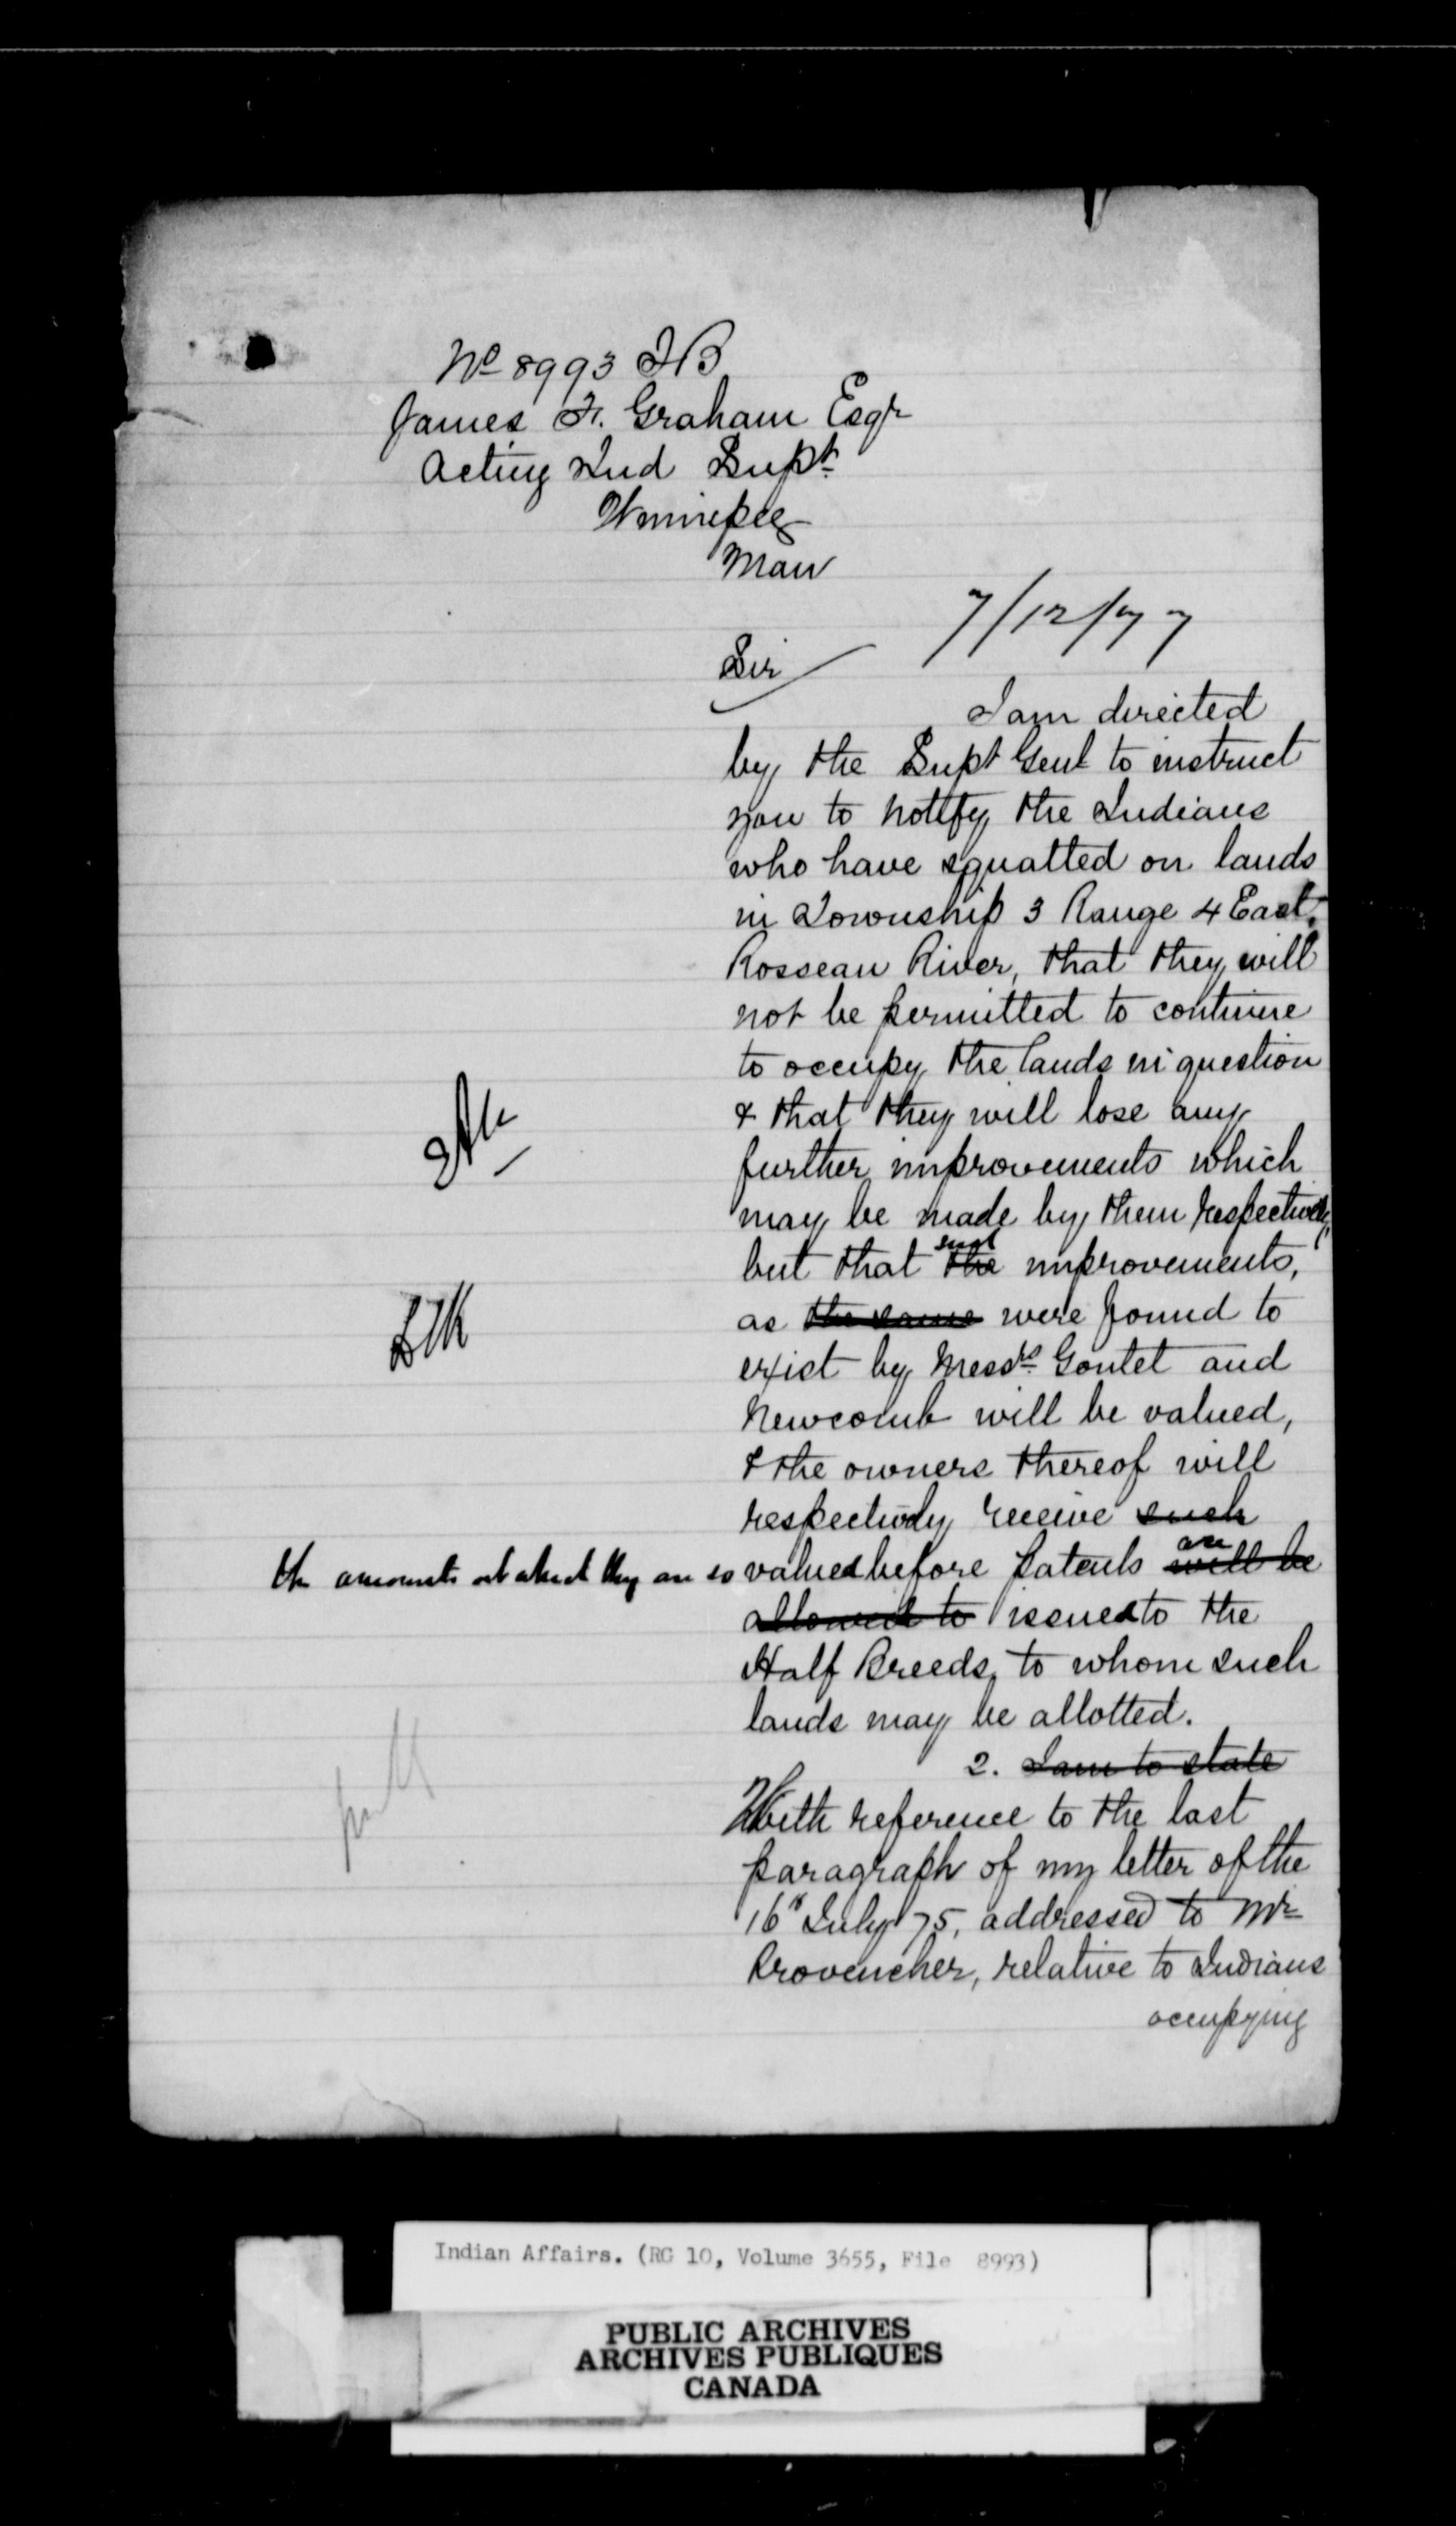 No 8993 JB
James F. Graham Esqr
Acting Ind Supt
Winnipeg
Man
7/12/77
Sir
I am directed
by the Supt Genl to instruct
you to notify the Indians
who have squatted on lands
in Township 3 Range 4 East,
Rosseau River, that they will
not be permitted to continue
to occupy the lands in question
& that they will lose any
further improvements which
may be made by them respectively,
such
but that the improvements,
as the same were found to
exist by Messrs Goulet and
Newcomb will be valued,
& the owners thereof will
respectively receive such
are
the amounts at which they are so valued before patents will be
allowed to issued to the
Half Breeds, to whom such
lands may be allotted.
2. I am to state
With reference to the last
paragraph of my letter of the
16th July 75, addressed to Mr
Provencher, relative to Indians
occupying
Indian Affairs. (RG 10, Volume 3655, File 8993)
PUBLIC ARCHIVES
ARCHIVES PUBLIQUES
CANADA